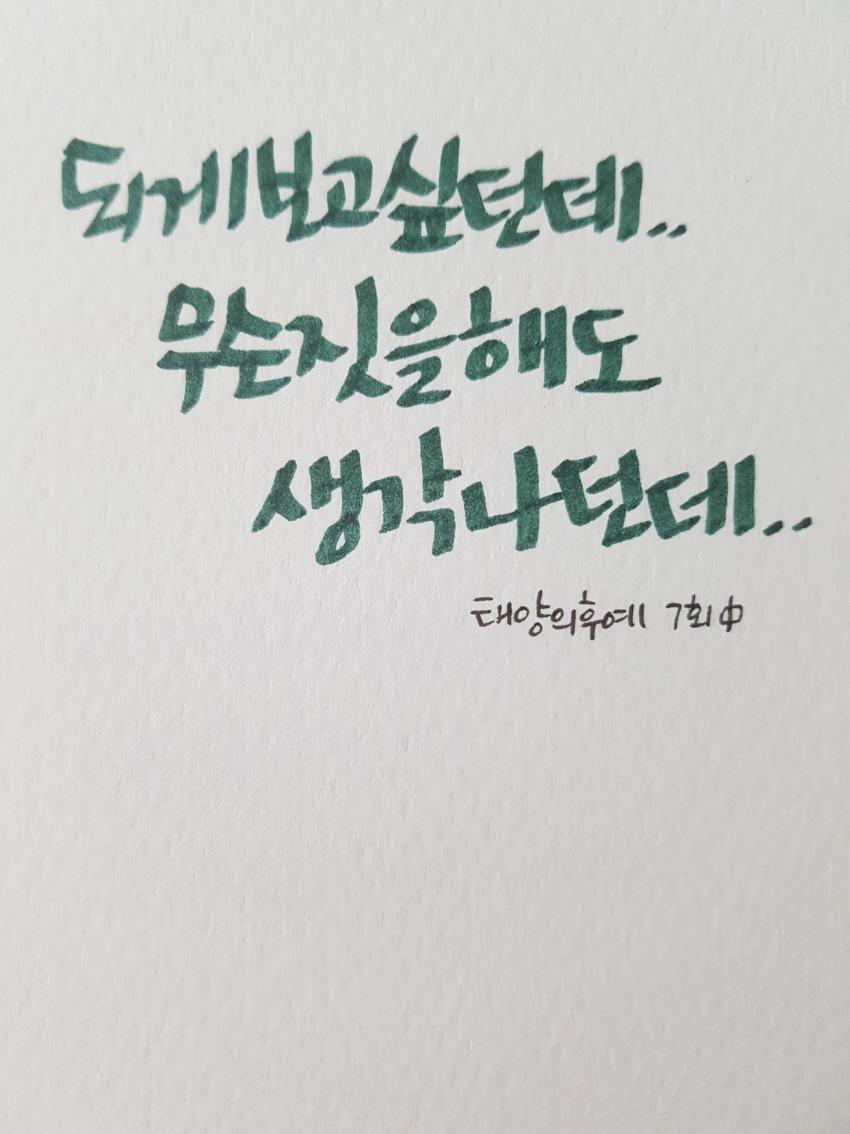 되게보고싶던데..
무슨짓을해도
생각나던데..
태양의후예 7회中